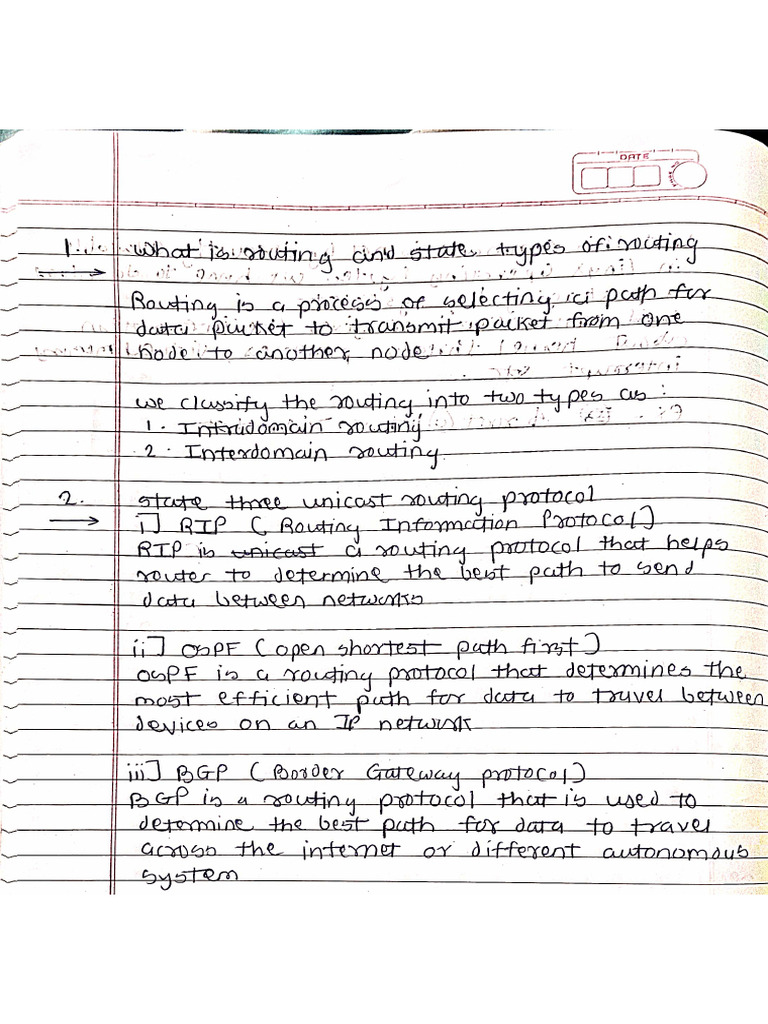 DATE
1. What is routing and state types of routing
Routing is a process of selecting a path for
data packet to transmit packet from one
node to another node
we classify the routing into two types as :
1. Intradomain routing
2. Interdomain routing
2. state three unicast routing protocol
i] RIP ( Routing Information Protocol]
RIP is unicast a routing protocol that helps
router to determine the best path to send
data between networks
ii] OSPF (open shortest path first)
OSPF is a routing protocol that determines the
most efficient path for data to travel between
devices on an IP network
iii] BGP (Border Gateway protocol)
BGP is a routing protocol that is used to
determine the best path for data to travel
across the internet or different autonomous
system